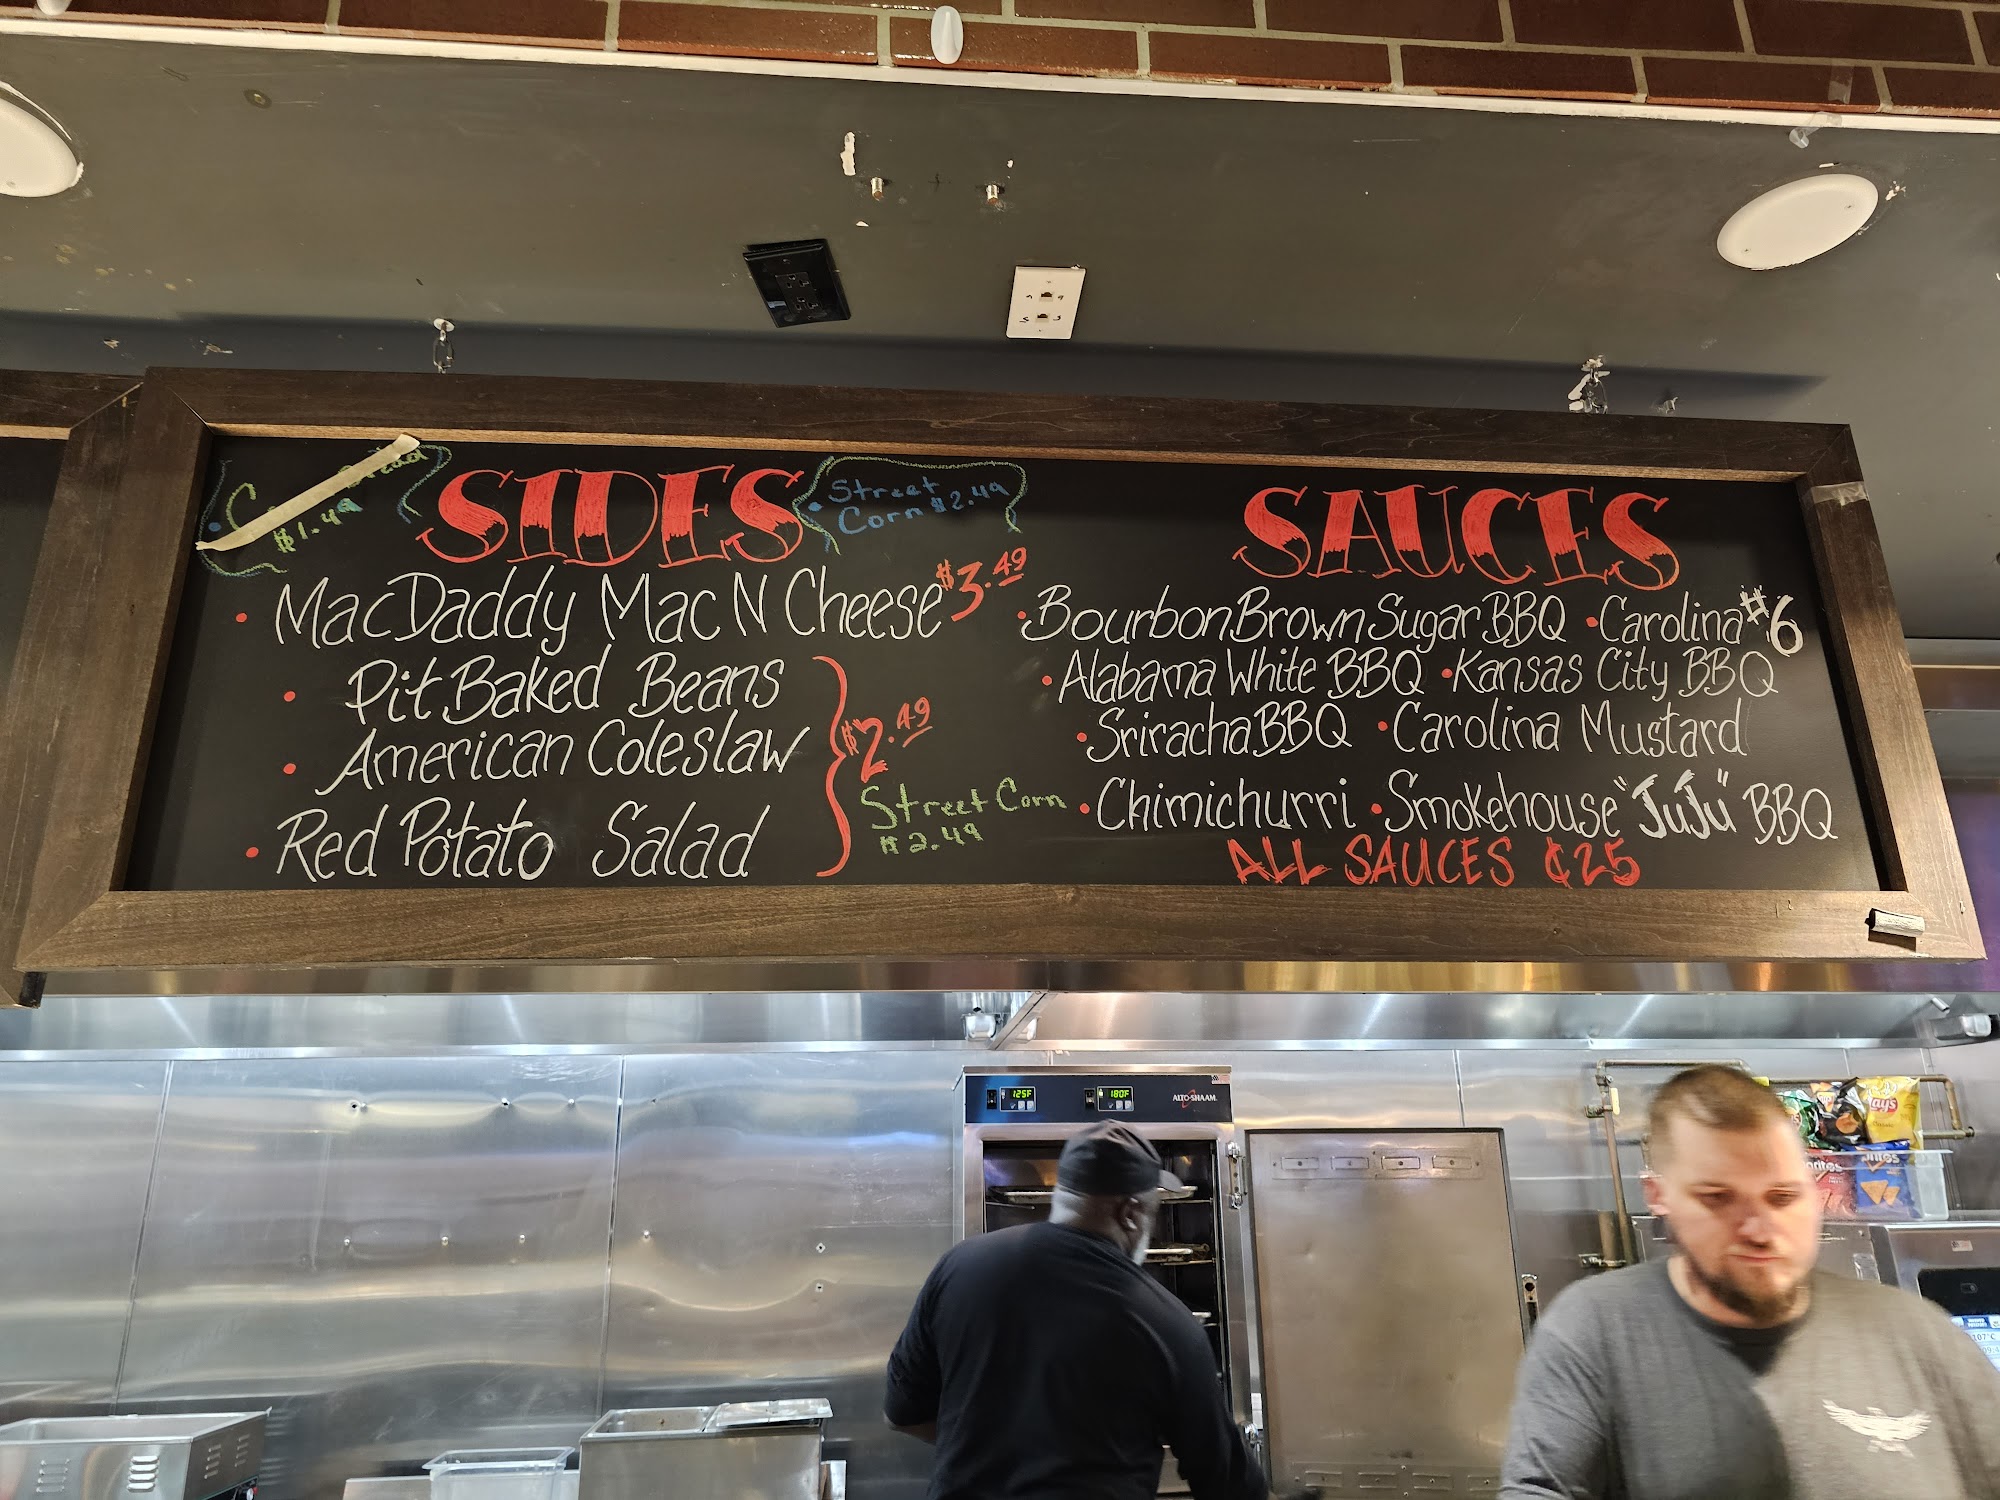 SIDES
$1.49
• Street
Corn $2.49
• MacDaddy Mac N Cheese $3.49
• Pit Baked Beans
• American Coleslaw
• Red Potato Salad
$2.49
Street Corn
$2.49
SAUCES
• Bourbon Brown Sugar BBQ • Carolina #6
• Alabama White BBQ • Kansas City BBQ
• Sriracha BBQ • Carolina Mustard
• Chimichurri • Smokehouse "JuJu" BBQ
ALL SAUCES ¢25
125F
180F
ALTO-SHAAM
Lay's